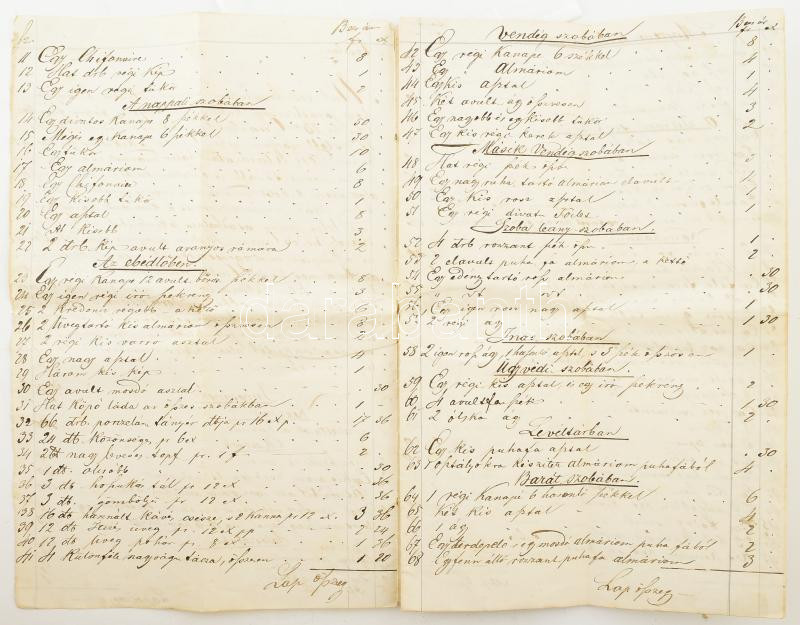 11 Egy Chifonnire 8
12 Hat drb régi kép 1
13 Egy igen régi tükör 2
A nappali szobában
14 Egy divatos kanapé 8 székkel 50
15 Mégis egy kanapé 6 székkel 30
16 Egy tükör 10
17 Egy almáriom 6
18 Egy Chifonnire 8
19 Egy kissebb tükör 1
20 Egy asztal 8
21 kissebb 3
22 2 drb. kép avult aranyos rámára 2
Az ebédlőben.
23 Egy régi kanapé 12 avult bőrös székkel 8
24 Egy igen régi író szekrény 3
25 2 Kredencz régebb 6
26 2 Üvegtartó kis almáriom összvesen 8
27 2 régi kis varró asztal 2
28 Egy nagy asztal 4
29 Három kis kép 1
30 Egy avult mosdó asztal 30
31 Hat köpő láda az összes szobákban 1
32 66 drb. porczelán tányér dbja pr 16 xp. 17 36
33 24 db közönséges pr 6x 6
34 2 db nagy leveses topf pr. 1 f 2
35 1 db. olcsóbb 30
36 3 db. hoszukás tál pr 12 x 36
37 3 db. gömbölyű pr 12 x 36
38 16 db használt kávés csésze, s 2 kanna pr 12 x. 3 36
39 12 db üveg pr. 12 x pp 2 24
40 12 db üveg pohár pr. 8 x. 1 36
41 4 Különféle nagyságu tácza, összesen 1 20
Lap összeg
Vendég szobában
42 Egy régi kanapé 6 székkel 8
43 Egy Almáriom 4
44 Egy kis asztal 1
45 Két avult ágy összvesen 4
46 Egy nagyobb és egy kisebb tükör 3
47 Egy kis régi kerek asztal 2
Másik Vendég szobában
48 Hat régi szék 3
49 Egy nagy ruha tartó almáriom elavult 1
50 Egy kis rosz asztal 1
51 Egy régi divat 1
Szoba leány szobában.
52 4 drb roszant szék 1
53 2 elavult puha fa almáriom a kettő 2
54 Egy edény tartó rosz almáriom 30
55 30
56 Egy igen rosz nagy asztal 1
57 2 régi ágy 1 30
Inas szobában
58 2 igen rosz ágy, 1 hasonló asztal, s 3 szék összvesen 1
Ügyvédi szobában.
59 Egy régi kis asztal és egy író szekrény 2
60 4 avult fa szék 30
61 2 ócska ágy 2
Levéltárban
62 Egy kis puhafa asztal 30
63 osztályokra készített almáriom puhafából 4
Barát szobában.
64 1 régi kanapé 6 hasonló székkel 6
65 két kis asztal 4
66 1 ágy 2
67 Egy derdepelo s egy mosdó almáriom puha fából 2
68 Egy fenn álló roszant puhafa almáriom 3
Lap összeg